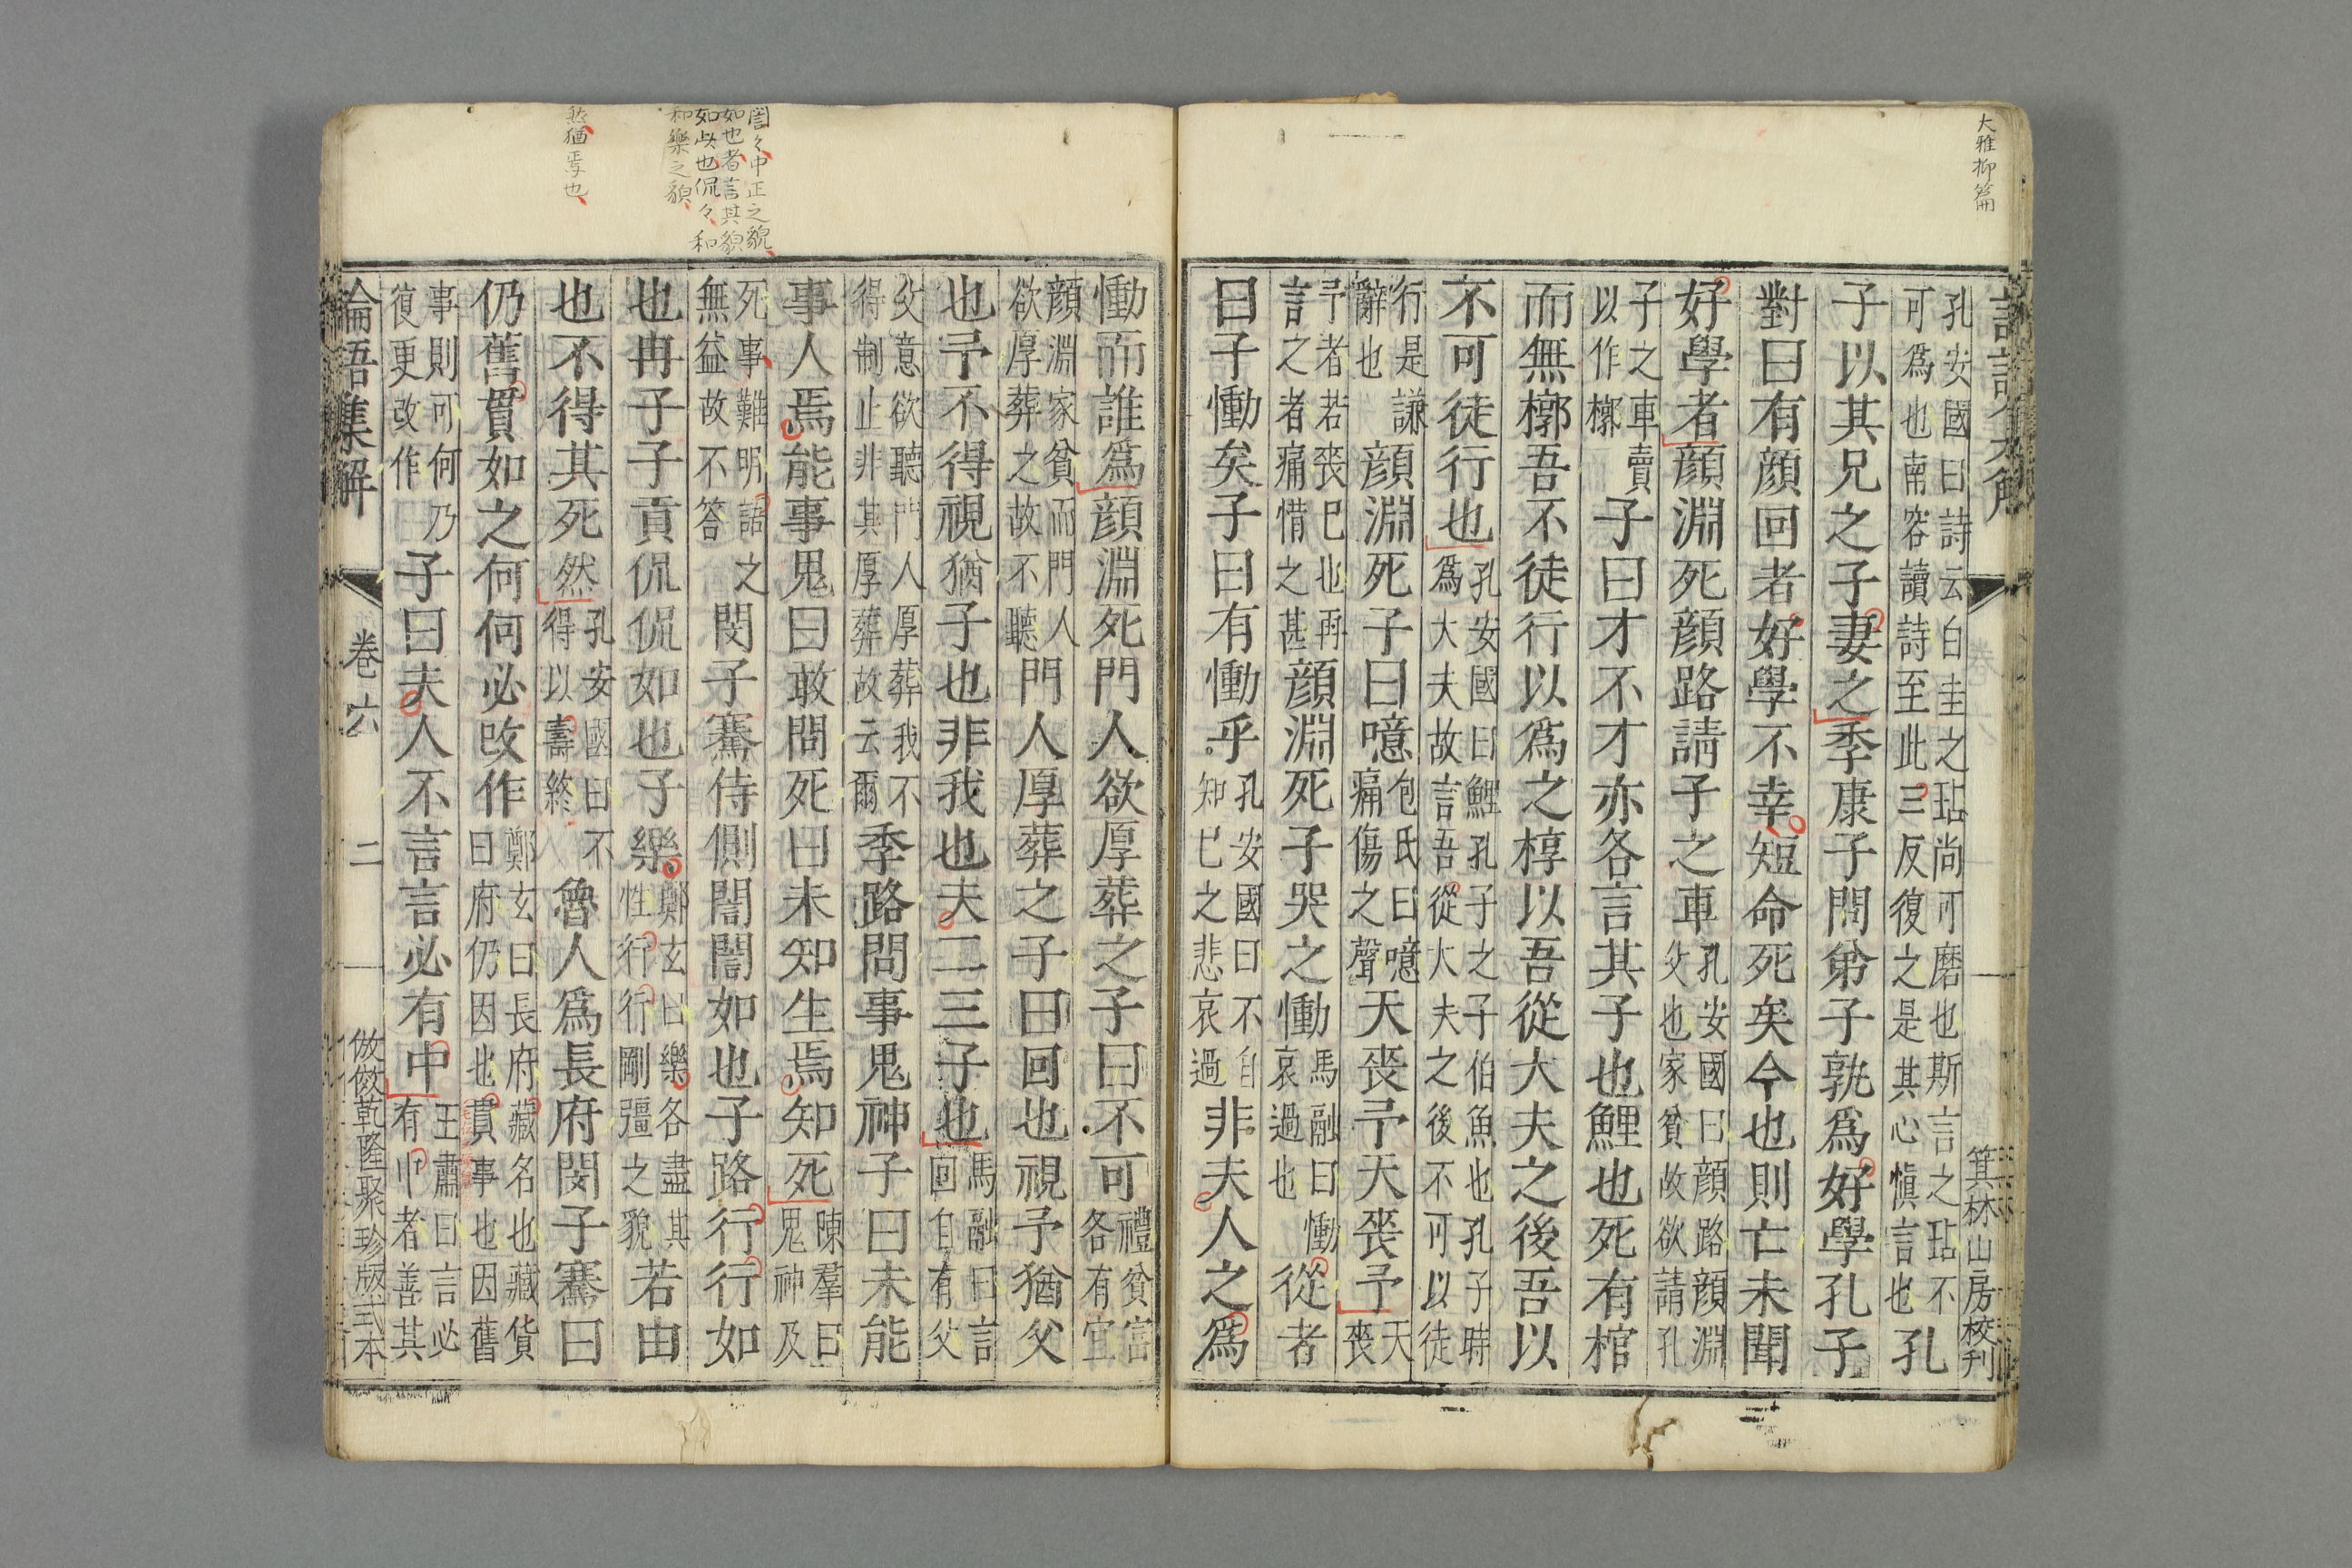 大雅抑篇
箕林山房校刊
孔安國曰詩云白圭之玷尚可磨也斯言之玷不可爲也南容讀詩至此三反復之是其心愼言也孔
子以其兄之子妻之季康子問弟子孰爲好學孔子
對曰有顔回者好學不幸短命死矣今也則亡未聞
好學者顔淵死顔路請子之車孔安國曰顔路顔淵父也家貧故欲請孔
子之車賣以作槨子曰才不才亦各言其子也鯉也死有棺
而無槨吾不徒行以爲之椁以吾從大夫之後吾以
不可徒行也孔安國曰鯉孔子之子伯魚也孔子時爲大夫故言吾從大夫之後不可以徒
行是謙辭也顔淵死子曰噫包氏曰噫痛傷之聲天喪予天喪予天喪
予者若喪己也再言之者痛惜之甚顔淵死子哭之慟馬融曰慟哀過也從者
曰子慟矣子曰有慟乎孔安國曰不自知己之悲哀過非夫人之爲
慟而誰爲顔淵死門人欲厚葬之子曰不可禮貧富各有宜
顔淵家貧而門人欲厚葬之故不聽門人厚葬之子曰回也視予猶父
也予不得視猶子也非我也夫二三子也馬融曰言回自有父
父意欲聽門人厚葬我不得制止非其厚葬故云爾季路問事鬼神子曰未能
事人焉能事鬼曰敢問死曰未知生焉知死陳羣曰鬼神及
死事難明語之無益故不答閔子騫侍側誾誾如也子路行行如
也冉子子貢侃侃如也子樂鄭玄曰樂各盡其性行行剛彊之貌若由
也不得其死然孔安國曰不得以壽終魯人爲長府閔子騫曰
仍舊貫如之何何必改作鄭玄曰長府藏名也藏貨曰府仍因也貫事也因舊
事則可何乃復更改作子曰夫人不言言必有中王肅曰言必有中者善其
誾々中正之貌
如也者言其貌
如此也侃々和
和樂之貌
然猶焉也
論語集解　卷六　二　倣倣乾隆聚珍版式本